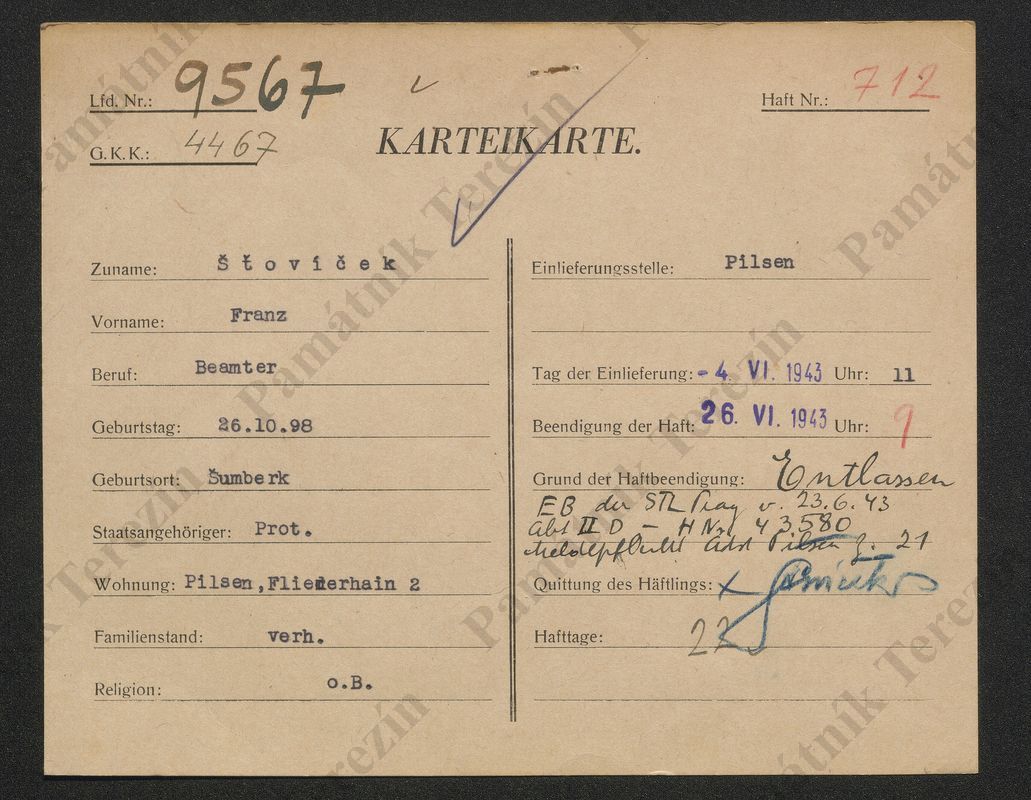 Lfd. Nr.: 9567
Haft Nr.: 712
G.K.K.: 4467
KARTEIKARTE.
Zuname: Štovíček
Vorname: Franz
Beruf: Beamter
Geburtstag: 26.10.98
Geburtsort: Šumberk
Staatsangehöriger: Prot.
Wohnung: Pilsen, Fliederhain 2
Familienstand: verh.
Religion: o.B.
Einlieferungsstelle: Pilsen
Tag der Einlieferung: - 4. VI. 1943 Uhr: 11
Beendigung der Haft: 26. VI. 1943 Uhr: 9
Grund der Haftbeendigung: Entlassen
EB der STL Prag v. 23.6.43
Abt II D - H Nr. 43580
Meldepflicht Pilsen 21
Quittung des Häftlings: x
Hafttage: 22
Památník Terezín